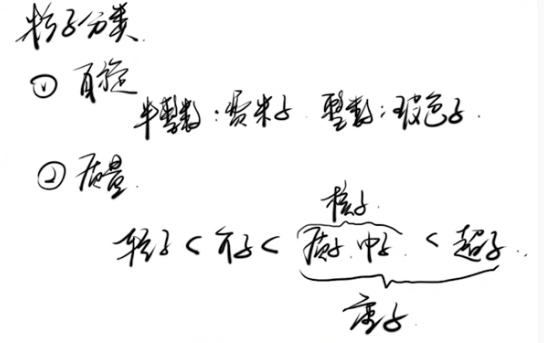 粒子分类
① 自旋
半整数:费米子 整数:玻色子.
② 质量
核子
轻子 < 介子 < 质子.中子 < 超子.
重子